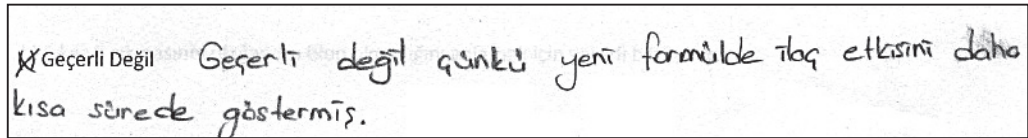 Geçerli Değil Geçerli değil çünkü yeni formülde ilaç etkisini daha
kısa sürede göstermiş.